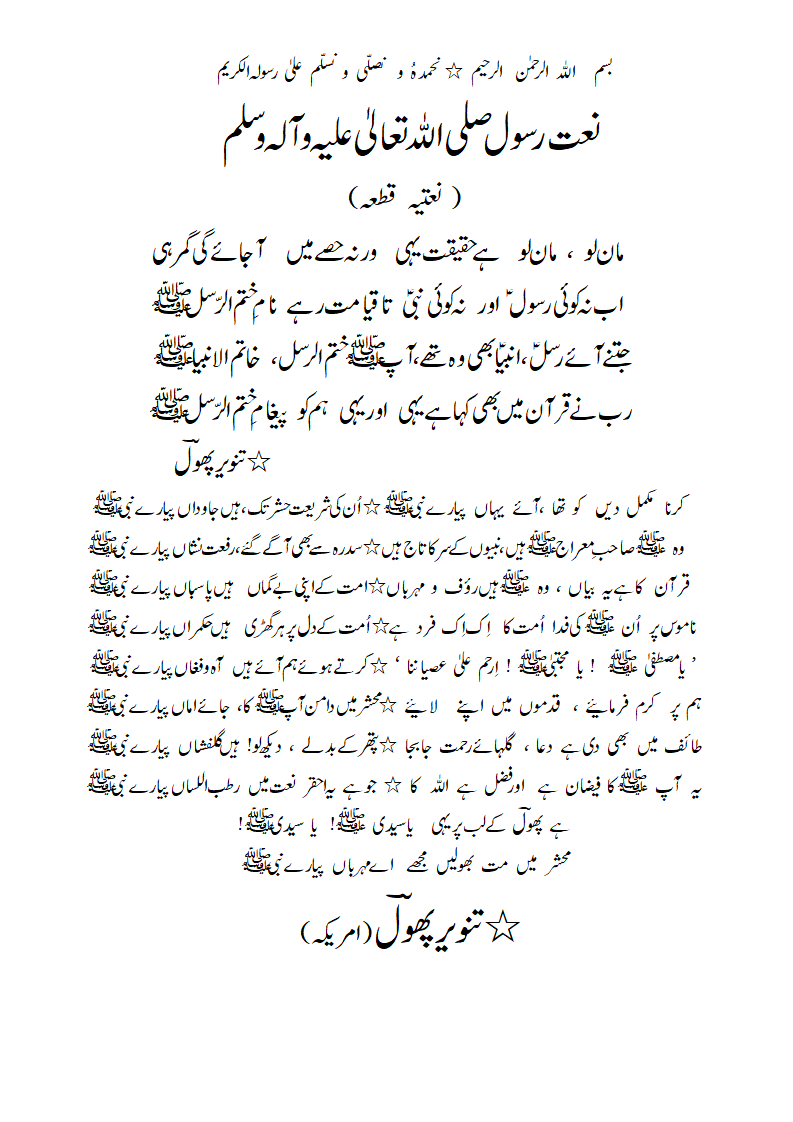 بسم اللہ الرحمٰن الرحیم ☆ نحمدہٗ و نصلّی و نسلّم علیٰ رسولہ الکریم
نعت رسول صلی اللہ تعالیٰ علیہ وآلہ وسلم
( نعتیہ قطعہ )
مان لو ، مان لو ہے حقیقت یہی ورنہ حصے میں آجائے گی گمرہی
اب نہ کوئی رسولؑ اور نہ کوئی نبیؑ تا قیامت رہے نامِ ختم الرّسلﷺ
جتنے آئے رسلؑ ،انبیاؑ بھی وہ تھے،آپﷺ ختم الرسل، خاتم الانبیاﷺ
رب نے قرآن میں بھی کہا ہے یہی اور یہی ہم کو پیغامِ ختم الرّسلﷺ
☆ تنویر پھولؔ
کرنا مکمل دیں کو تھا ،آئے یہاں پیارے نبیﷺ ☆ اُن کی شریعت حشر تک،ہیں جاوداں پیارے نبیﷺ
وہ ﷺ صاحبِ معراجﷺ ہیں، نبیوں کے سر کا تاج ہیں ☆ سدرہ سے بھی آگے گئے،رفعت نشاں پیارے نبیﷺ
قرآن کا ہے یہ بیاں ، وہ ﷺ ہیں رؤف و مہرباں ☆ امت کے اپنی بے گماں ہیں پاسباں پیارے نبیﷺ
ناموس پر اُن ﷺ کی فدا اُمت کا اِک اِک فرد ہے ☆ اُمت کے دل پر ہر گھڑی ہیں حکمراں پیارے نبیﷺ
’ یا مصطفیٰ ﷺ ! یا مجتبیٰﷺ ! اِرحم علیٰ عصیاننا ‘ ☆ کرتے ہوئے ہم آئے ہیں آہ وفغاں پیارے نبیﷺ
ہم پر کرم فرمائیے ، قدموں میں اپنے لائیے ☆ محشر میں دامن آپﷺ کا، جائے اماں پیارے نبیﷺ
طائف میں بھی دی ہے دعا ، گلہائے رحمت جا بجا ☆ پتھر کے بدلے ، دیکھ لو! ہیں گلفشاں پیارے نبیﷺ
یہ آپ ﷺ کا فیضان ہے اور فضل ہے اللہ کا ☆ جو ہے یہ احقر نعت میں رطب اللساں پیارے نبیﷺ
ہے پھولؔ کے لب پر یہی یا سیدی ﷺ! یا سیدیﷺ!
محشر میں مت بھولیں مجھے اے مہرباں پیارے نبیﷺ
☆ تنویر پھولؔ (امریکہ)